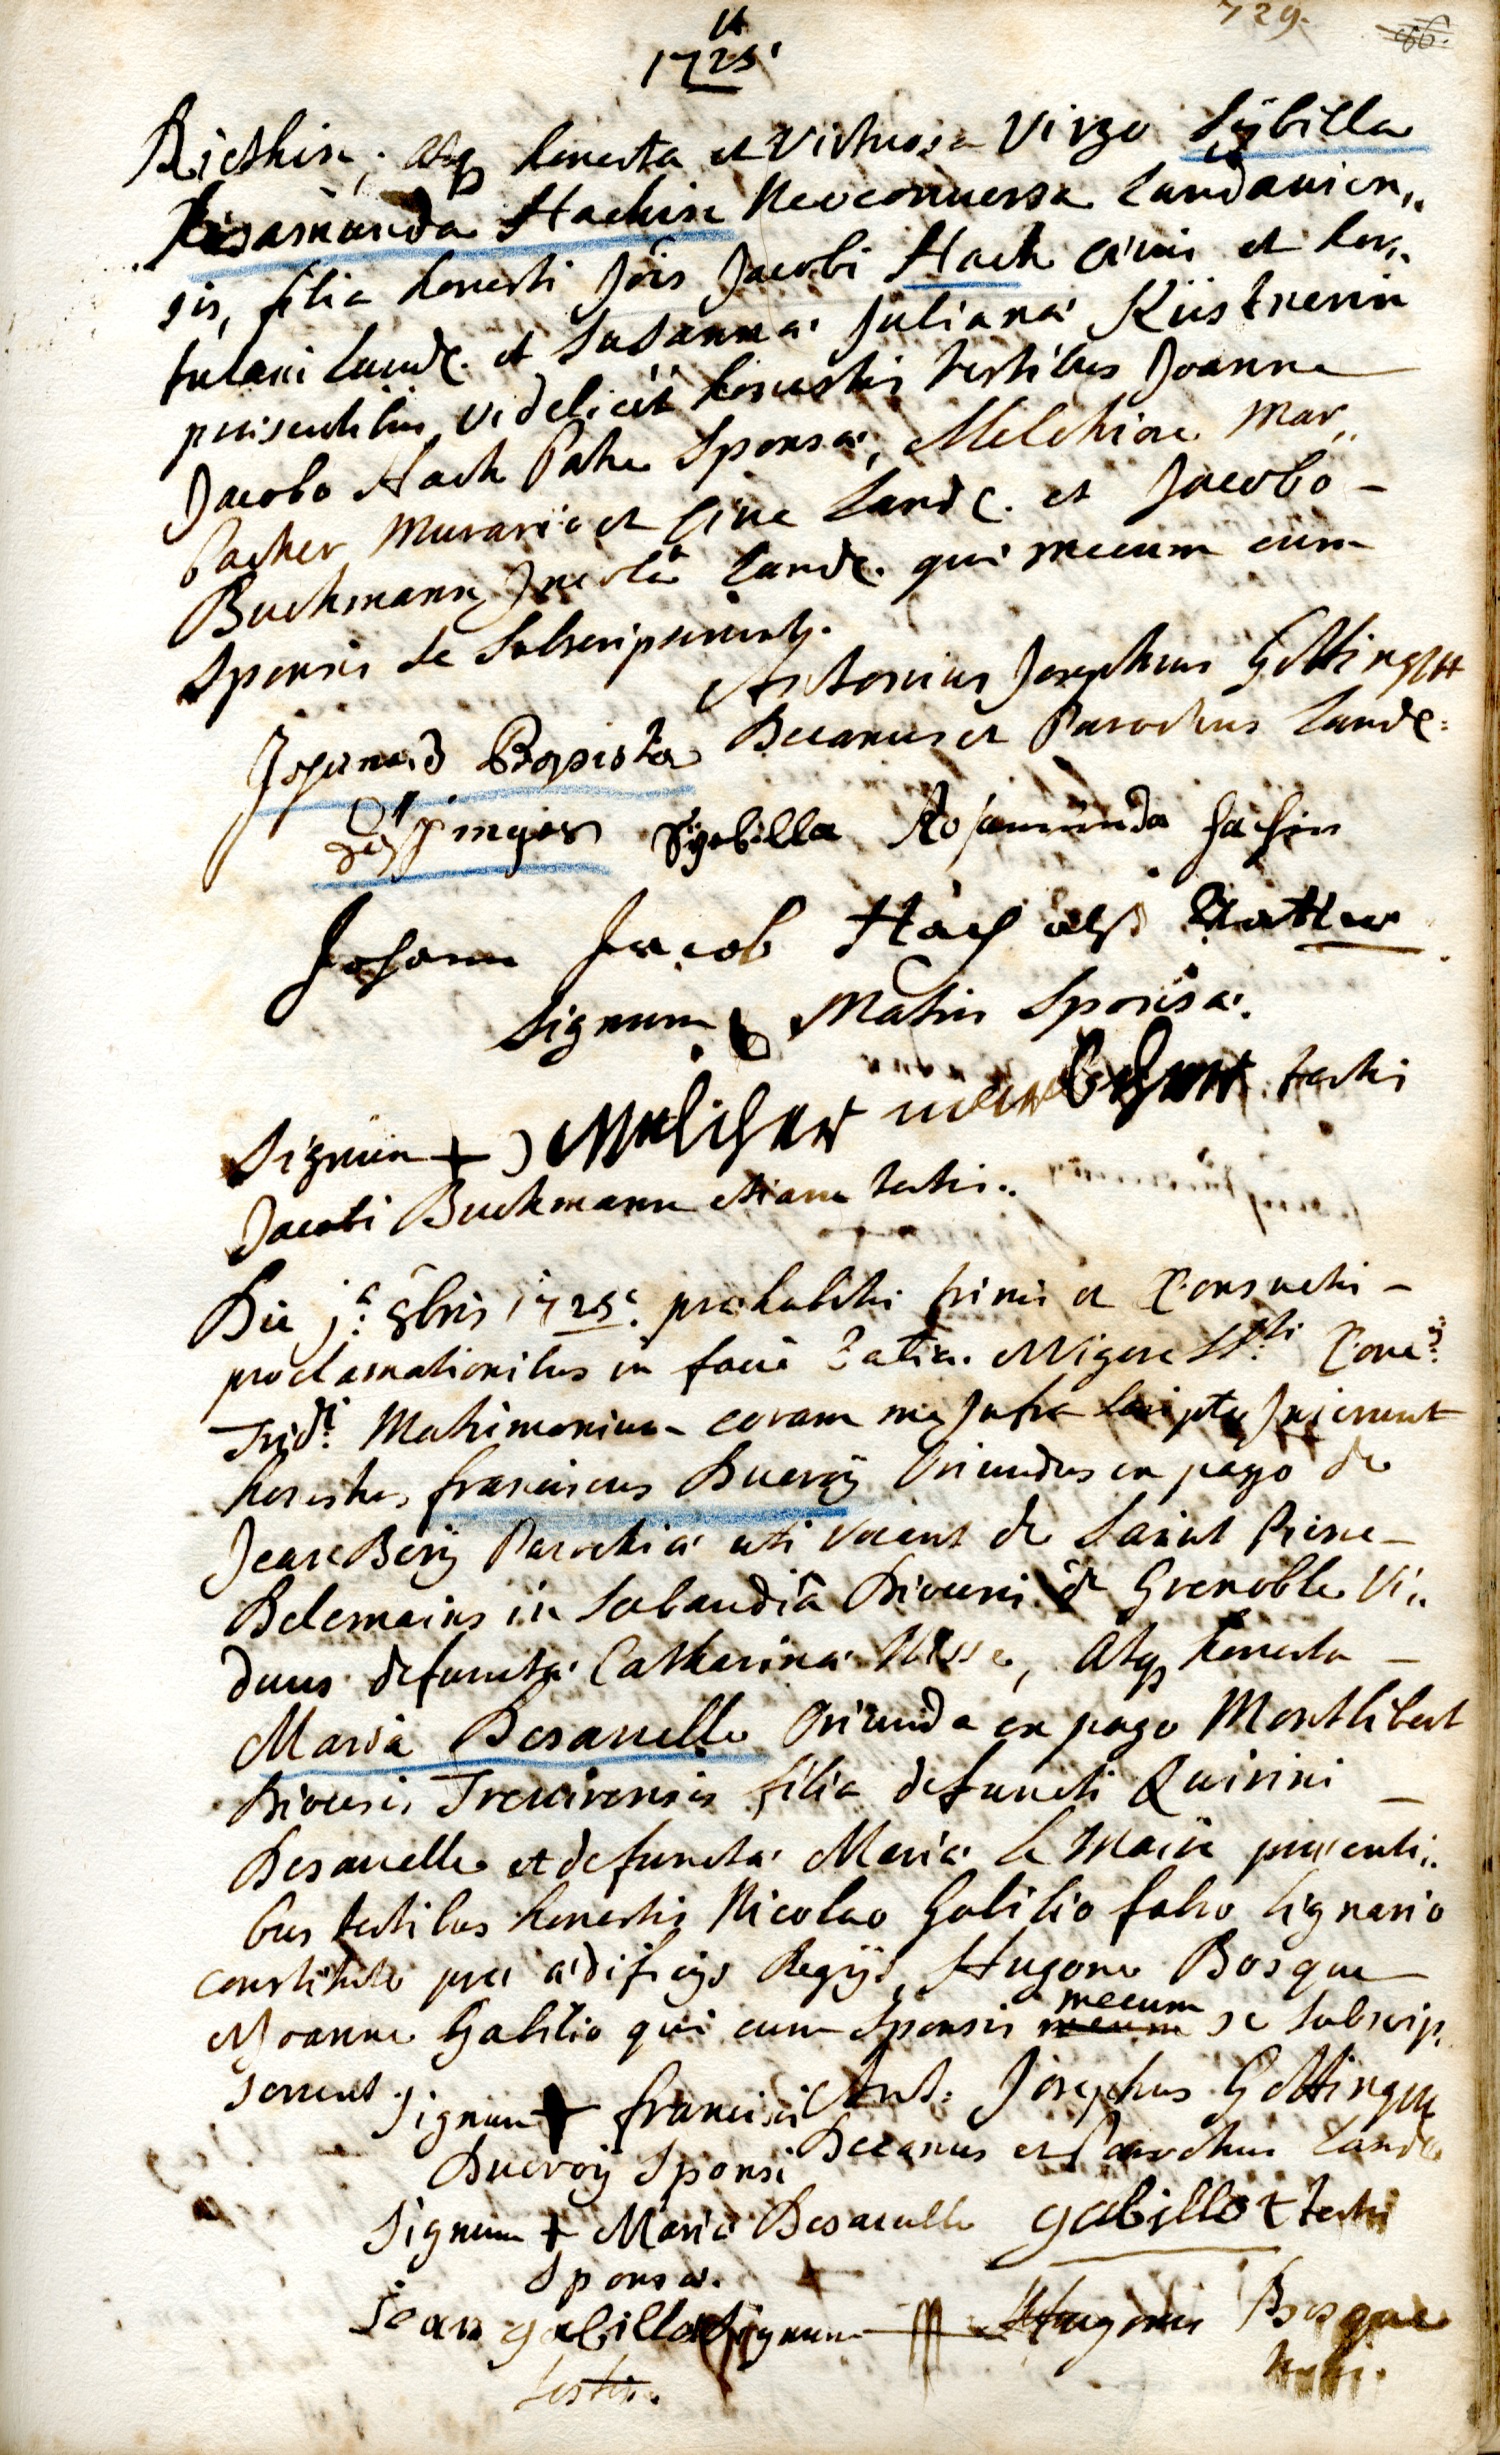 729.
1725.
Riethin, atq honesta et Virtuosa Virgo Sÿbilla
Rosamunda Hachin Neoconversa Landavien„
sis, filia honesti Jois Jacobi Hach Civis et hor„
tulani Landc. et Susannæ Julianæ Küstnerin
præsentibus videlicet honestis testibus Joanne
Jacobo Hach Patre Sponsæ, Melchiore Mar„
bacher Murario et Cive Landc. et Jacobo –
Buchmann Incola Landc. qui mecum cum
Sponsis se Subscripserunt.
Antonius Josephus Göttinger
Decanus et Parochus Landc:
Johannes Baptista
Sybilla Rosamunda Hachin
Johann Jacob Hach alß Vatter
Signum Matris Sponsæ.
Signum + Melcher marbacher testis
Jacobi Buchmann etiam testis.
Die j.a 8bris 1725. prehabitis trinis et Consuetis –
proclamationibus in facie Ecclia. Vigore SSti Conc.
Trid.ti Matrimonium coram me Infra Scripto Inierunt
honestus franciscus Ducroÿ Oriundus ex pago de
Jean Berÿ Parochiæ uti vocant de Saint Pierre –
Belemains in Sabaudiâ Diocesis de Grenoble Vi„
duus defunctæ Catharinæ Nisse, Atq honesta –
Maria Desavelle Oriunda ex pago Montlibert
Diocesis Trevirensis filia defuncti Quirini –
Desavelle et defunctæ Mariæ le Maire præsenti„
bus testibus honestis Nicolao Gabilio fabro lignario
constituto pro ædificijs Regijs, Hugone Bosque
et Joanne Gabilio qui cum Sponsis mecum se Subscrip„
serunt.
Ant: Josephus Göttinger
Decanus et Parochus Landc
Signum + francisci
Ducroÿ Sponsi
Signum + Mariæ Desavelle
Sponsæ.
gabillot testis
Jean gabillot
testis.
Signum Hugonis Bosque
testis.